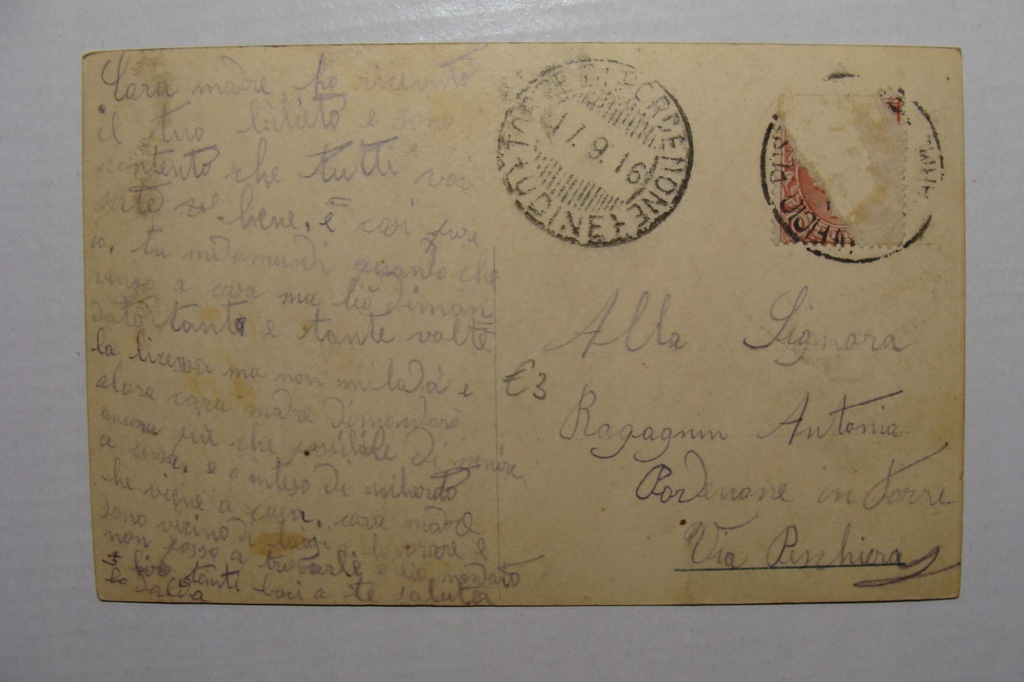 Cara madre ho ricevuto
il tuo bilito e sono
contento che tutti voi
siate bene, è così pure
io, tu mdomundi quando che
vengo a casa ma liò diman
dato tante e tante volte
la licessa ma non miladà e
alora cara madre dimandarò
ancora più che posibile di venire
a casa, e o inteso di
he viene a casa, cara madre
sono vicino di luigi lavorare e
non posso a trovarle e liò mandato
tanti baci a te saluta
TORRE DI PORDENONE
17.9.16
(UDINE)
UFFICIO
Alla Signora
€3
Ragagnin Antonia
Pordenone in Torre
Via Peschiera